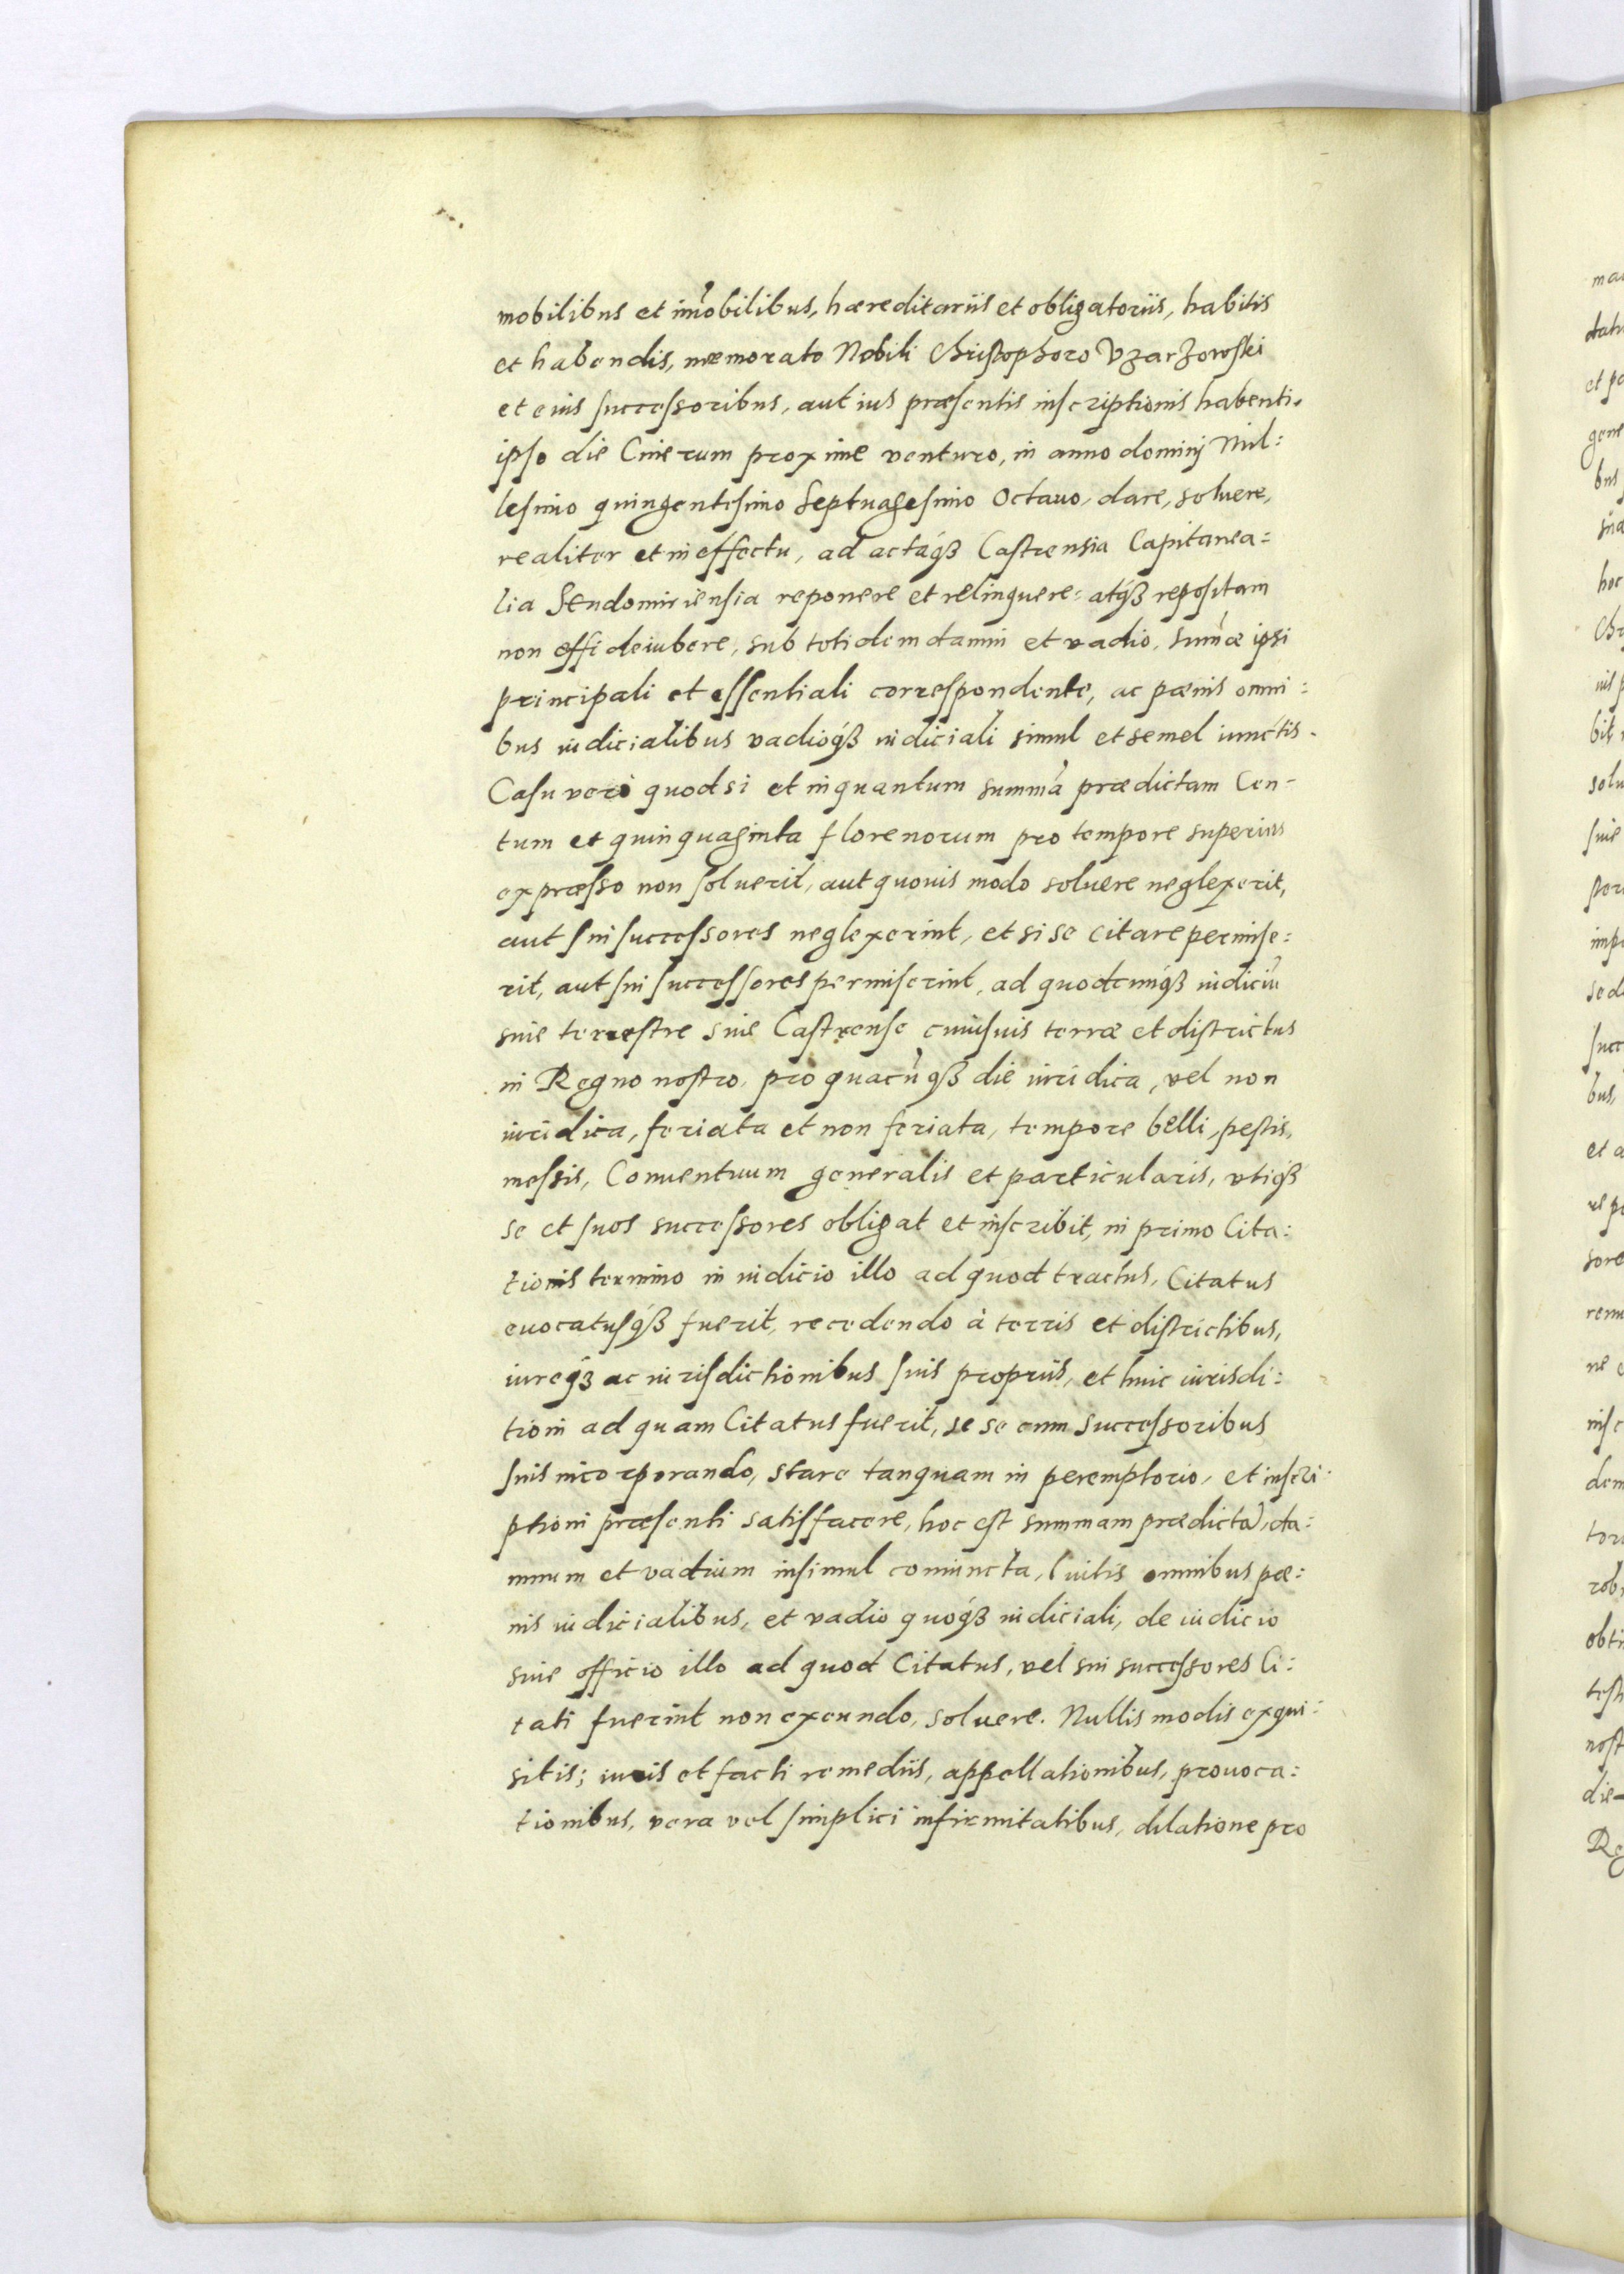 mobilibus et im̃obilibus, hæreditariis et obligatoriis, habitis
et habendis, memorato Nobili Christophoro Vzarzowski
et eius successoribus, aut ius præsentis inscriptionis habenti.
ipso die Cinerum proxime venturo, in anno dominj Mil:
lesimo quingentesimo Septuagesimo Octauo, dare, soluere,
realiter et in effectu, ad actaq́ꝫ Castrensia Capitanea:
lia Sendomiriensia reponere et relinquere: atq́ꝫ repositam
non effideiubere, sub totidem damni et vadio, sum̃æ ipsi
principali et essentiali correspondente, ac pœnis omni:
bus iudicialibus vadioq́ꝫ iudiciali simul et semel iunctis.
Casu verò quodsi et inquantum summã prædictam Cen-
tum et quinquaginta florenorum pro tempore superius
expræsso non soluerit, aut quouis modo soluere neglexerit,
aut sui successores neglexerint, et si se citare permise:
rit, aut sui successores permiserint, ad quodcunq́ꝫ iudiciũ
siue terrestre siue Castrense cuiusuis terræ et districtus
in Regno nostro, pro quacũqꝫ die iuridica, vel non
iuridica, feriata et non feriata, tempore belli, pestis,
messis, Conuentuum generalis et particularis, vtiqꝫ
se et suos successores obligat et inscribit, in primo Cita:
tionis termino in iudicio illo ad quod tractus, Citatus
euocatusq́ꝫ fuerit, recedendo à terris et districtibus,
iureq́ꝫ ac iurisdictionibus suis propriis, et huic iurisdi:
tioni ad quam Citatus fuerit, se se cum Successoribus
suis incorporando, stare tanquam in peremptorio, et inscri:
ptioni præsenti satisfacere, hoc est summam prædictã, da:
mnum et vadium insimul coniuncta, luitis omnibus pœ:
nis iudicialibus, et vadio quoq́ꝫ iudiciali, de iudicio
siue officio illo ad quod Citatus, vel sui successores Ci:
tati fuerint non exeundo, soluere. Nullis modis exqui:
sitis; iuris et facti remediis, appellationibus, prouoca:
tionibus, vera vel simplici infirmitatibus, dilatione pro